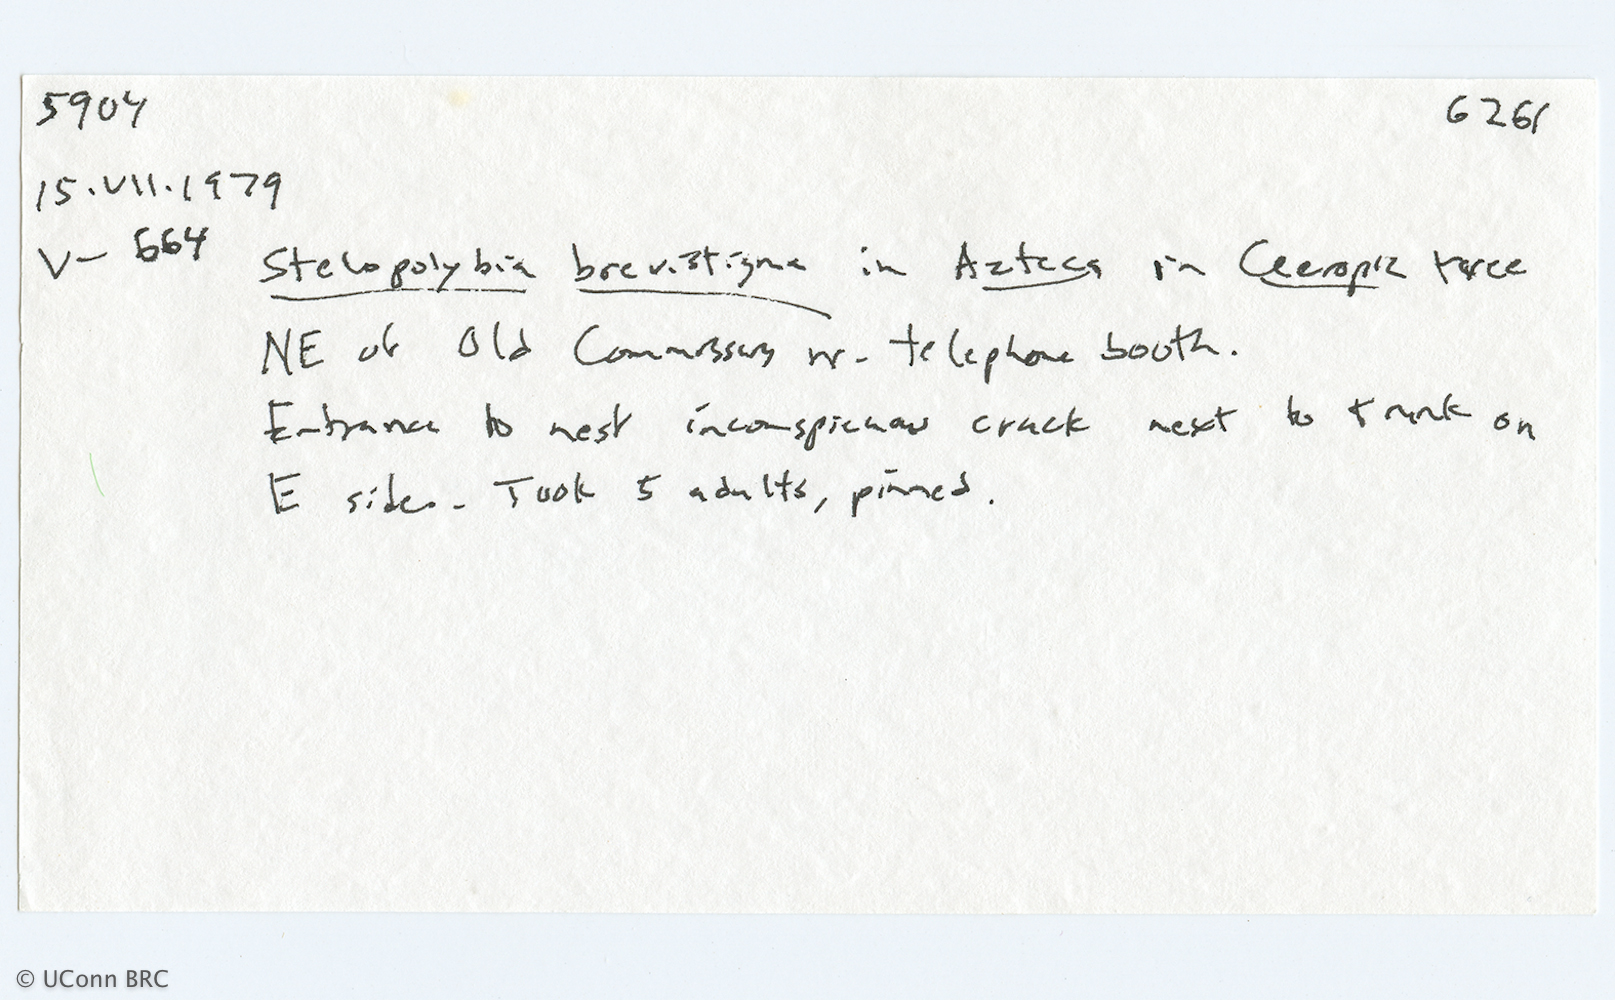 5904 6261
15.VII.1979
V-664 Stelopolybia brevistigma in Azteca in Cecropia tree
NE of Old Commissary nr. telephone booth.
Entrance to nest inconspicuous crack next to trunk on
E side. Took 5 adults, pinned.
© UConn BRC